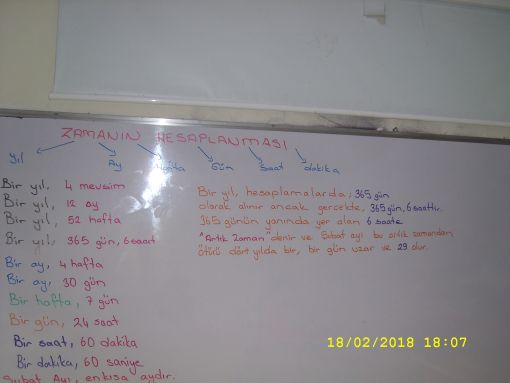 ZAMANIN HESAPLANMASI
yıl Ay Hafta Gün Saat dakika
Bir yıl, 4 mevsim
Bir yıl, 12 ay
Bir yıl, 52 hafta
Bir yıl, 365 gün, 6 saat
Bir ay, 4 hafta
Bir ay, 30 gün
Bir hafta, 7 gün
Bir gün, 24 saat
Bir saat, 60 dakika
Bir dakika, 60 saniye
Şubat Ayı, en kısa aydır.
Bir yıl, hesaplamalarda; 365 gün
olarak alınır ancak gerçekte, 365 gün, 6 saattir.
365 günün yanında yer alan 6 saate
"Artık Zaman" denir ve Şubat ayı bu artık zamandan
ötürü dört yılda bir, bir gün uzar ve 29 olur.
18/02/2018 18:07